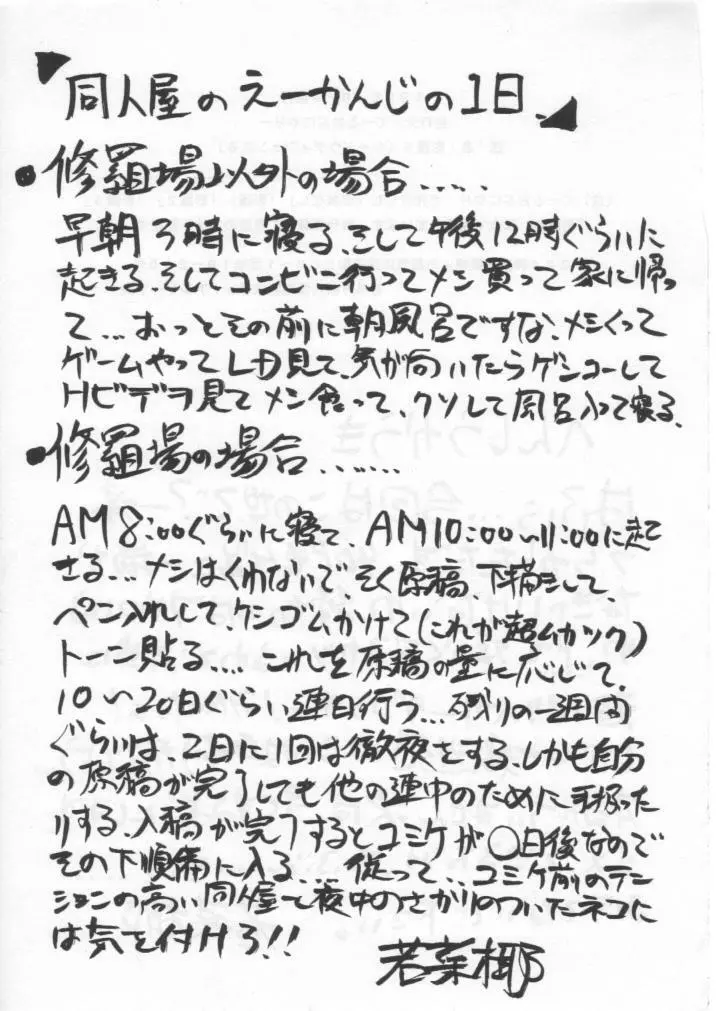 同人屋のえーかんじの1日
●修羅場以外の場合......
早朝3時に寝る、そして午後12時ぐらいに
起きる、そしてコンビニ行ってメシ買って家に帰っ
て...おっとその前に朝風呂ですな、メシくって
ゲームやってLD見て、気が向いたらゲンコーして
Hビデヲ見てメシ食って、クソして風呂入って寝る、
●修羅場の場合.......
AM8:00ぐらいに寝て、AM10:00〜11:00に起
きる...メシはくわないでそく原稿、下描きして、
ペン入れして、ケシゴムかけて(これが超ムカツク)
トーン貼る.... これを原稿の量に応じて、
10〜20日ぐらい連日行う...残りの一週間
ぐらいは、2日に1回は徹夜をする、しかも自分
の原稿が完了しても他の連中のために手伝った
りする、入稿が完了するとコミケが○日後なので
その下準備に入る.... 従って...コミケ前のテン
ションの高い同人屋と夜中のさかりのついたネコに
は気を付けろ!!
若菜椰